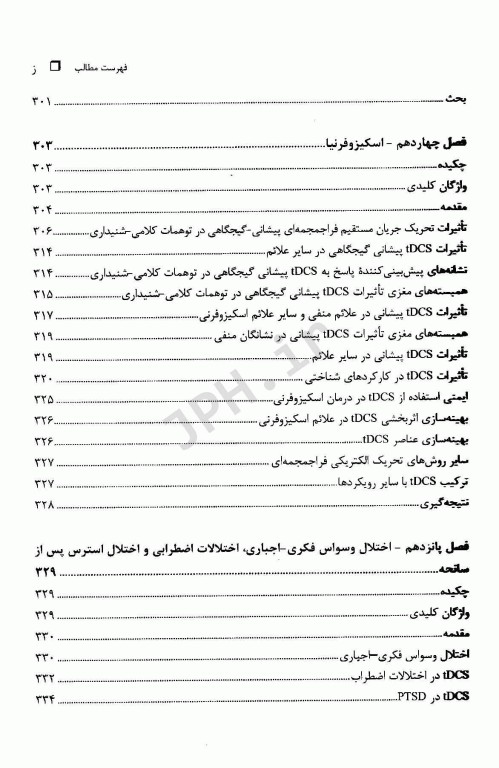 فهرست مطالب ❒ ز
بحث ........ ۳۰۱
فصل چهاردهم - اسکیزوفرنیا ........ ۳۰۳
چکیده ........ ۳۰۳
واژگان کلیدی ........ ۳۰۳
مقدمه ........ ۳۰۴
تأثیرات تحریک جریان مستقیم فراجمجمه‌ای پیشانی-گیجگاهی در توهمات کلامی-شنیداری ........ ۳۰۶
تأثیرات tDCS پیشانی گیجگاهی در سایر علائم ........ ۳۱۴
نشانه‌های پیش‌بینی‌کنندهٔ پاسخ به tDCS پیشانی گیجگاهی در توهمات کلامی-شنیداری ........ ۳۱۴
همبسته‌های مغزی تأثیرات tDCS پیشانی گیجگاهی در توهمات کلامی-شنیداری ........ ۳۱۵
تأثیرات tDCS پیشانی در علائم منفی و سایر علائم اسکیزوفرنی ........ ۳۱۷
همبسته‌های مغزی تأثیرات tDCS پیشانی در نشانگان منفی ........ ۳۱۹
تأثیرات tDCS پیشانی در سایر علائم ........ ۳۱۹
تأثیرات tDCS در کارکردهای شناختی ........ ۳۲۰
ایمنی استفاده از tDCS در درمان اسکیزوفرنی ........ ۳۲۵
بهینه‌سازی اثربخشی tDCS در علائم اسکیزوفرنی ........ ۳۲۶
بهینه‌سازی عناصر tDCS ........ ۳۲۶
سایر روش‌های تحریک الکتریکی فراجمجمه‌ای ........ ۳۲۷
ترکیب tDCS با سایر رویکردها ........ ۳۲۷
نتیجه‌گیری ........ ۳۲۸
فصل پانزدهم - اختلال وسواس فکری-اجباری، اختلالات اضطرابی و اختلال استرس پس از
سانحه ........ ۳۲۹
چکیده ........ ۳۲۹
واژگان کلیدی ........ ۳۲۹
مقدمه ........ ۳۳۰
اختلال وسواس فکری-اجباری ........ ۳۳۰
tDCS در اختلالات اضطراب ........ ۳۳۲
tDCS در PTSD ........ ۳۳۴
JPH.ir